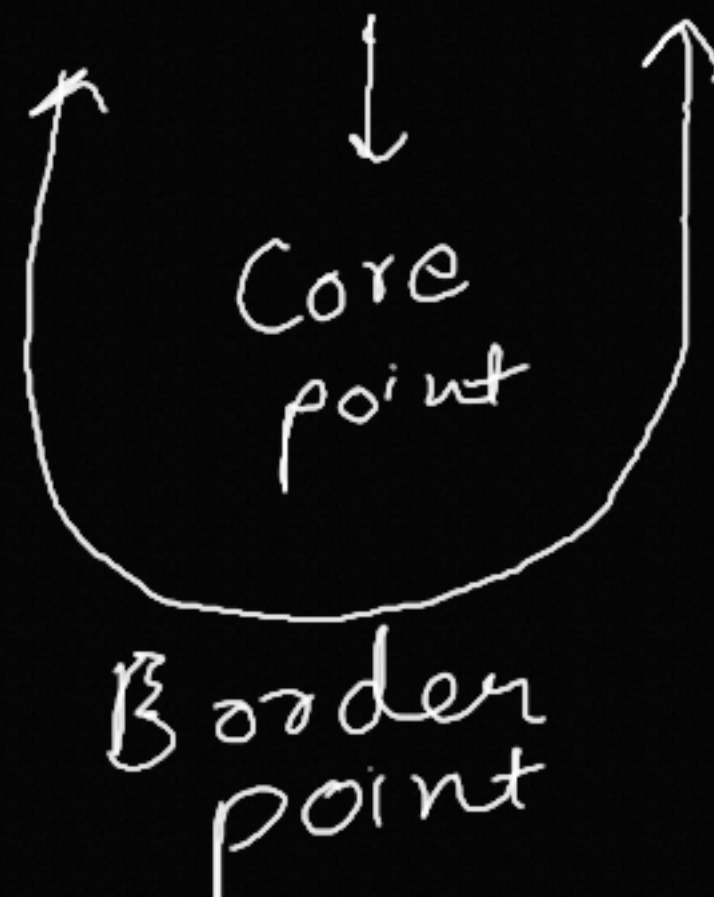 Core
point
Border
point